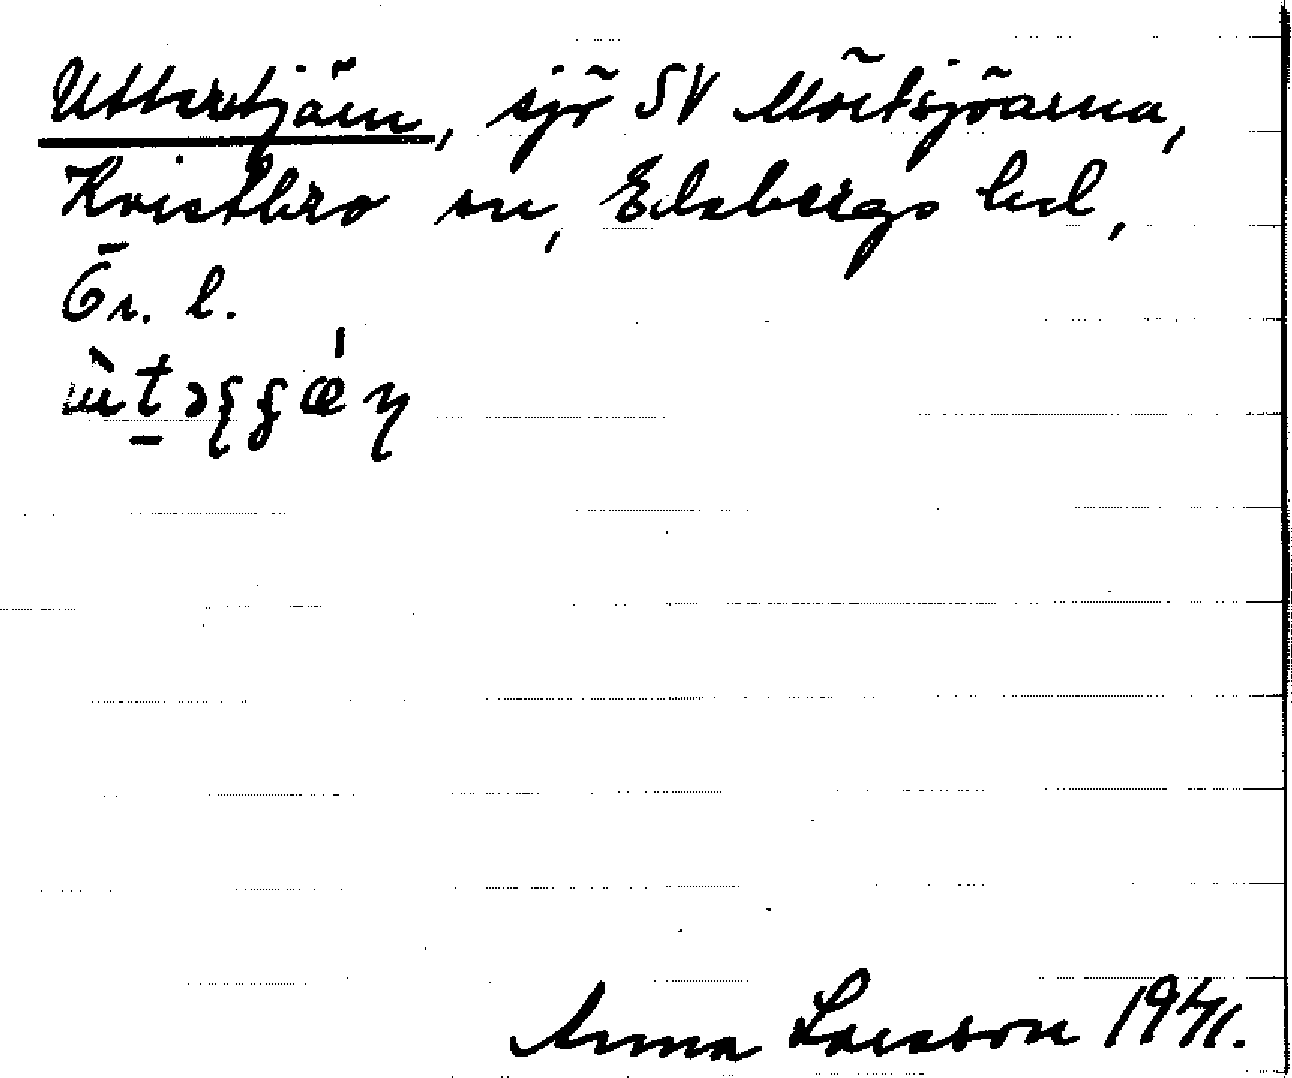 Uttertjärn, sjö SV Mörtsjöarna,
Kvistbro sn, Edsbergs hd,
Ör. l.
Anna Larsson 1941.